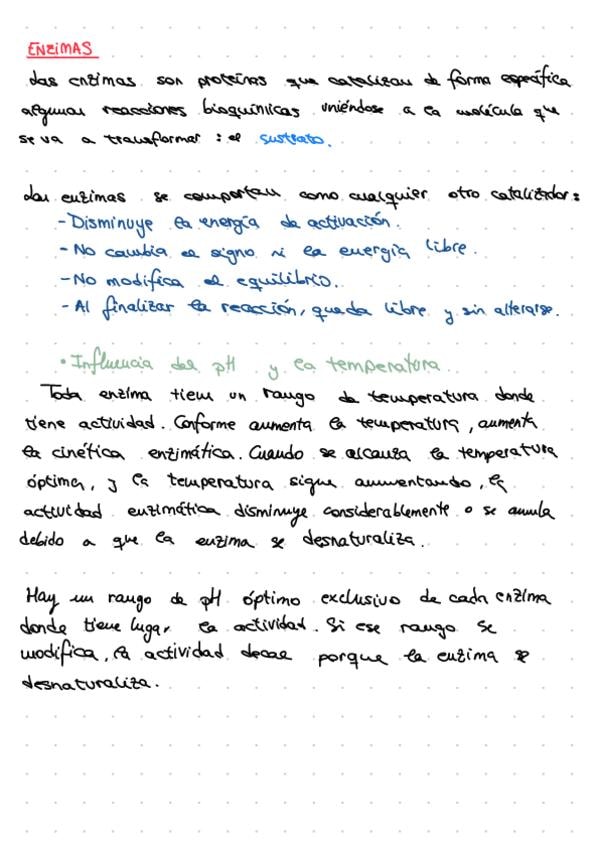 ENZIMAS
Las enzimas son proteínas que catalizan de forma específica
algunas reacciones bioquímicas uniéndose a la molécula que
se va a transformar : el sustrato.
Las enzimas se comportan como cualquier otro catalizador:
- Disminuye la energía de activación.
- No cambia el signo ni la energía libre.
- No modifica el equilibrio.
- Al finalizar la reacción, queda libre y sin alterarse.
• Influencia del pH y la temperatura.
Toda enzima tiene un rango de temperatura donde
tiene actividad. Conforme aumenta la temperatura, aumenta
la cinética enzimática. Cuando se alcanza la temperatura
óptima, y la temperatura sigue aumentando, la
actividad enzimática disminuye considerablemente o se anula
debido a que la enzima se desnaturaliza.
Hay un rango de pH óptimo exclusivo de cada enzima
donde tiene lugar la actividad. Si ese rango se
modifica, la actividad decae porque la enzima se
desnaturaliza.